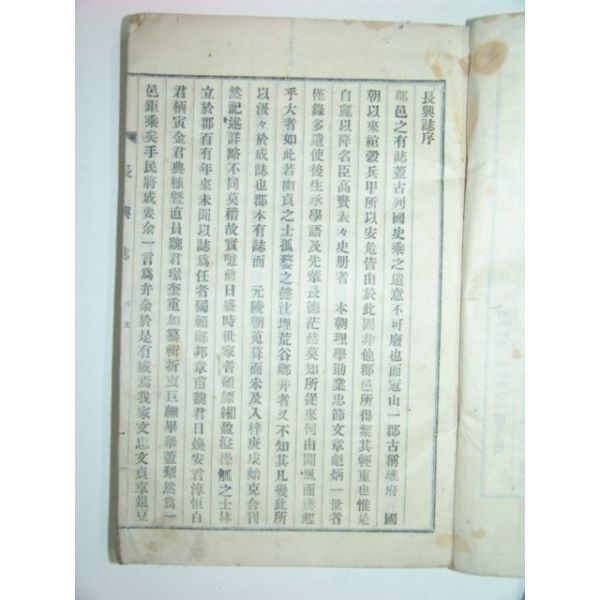 長興誌序
郡邑之有誌蓋古列國史乘之遺意不可廢也而冠山一郡古稱雄府 國
朝以來綰轂兵甲所以安危皆由於此固非他郡邑所得絜其輕重也惟是
自麗以降名臣高賢表々史册者 本朝理學勛業忠節文章彪炳一世者
僅錄多遺使後生承學語及先輩長德茫然莫知所從來何由聞風而興起
乎大者如此若幽貞之士孤嫠之懿沈埋荒谷鄉井者又不知其凡幾此所
以汲々於成誌也郡本有誌而 元陵朝蒐葺而未及入梓庚戌始克合刊
然記述詳略不同莫稽故實 日盛時世家耆碩縹緗盈溢掛觚之士林
立於郡百有年來未聞以誌爲任者獨賴鄉邦章甫魏君日煥安君淳恒白
君柄寅金君典植曁直員魏君璟奎重加纂輯折衷巨細畢擧釐然爲一
邑鉅乘矣手民將成要余一言爲弁余於是有感焉我家文忠文貞享俎豆
長興誌
序文
一